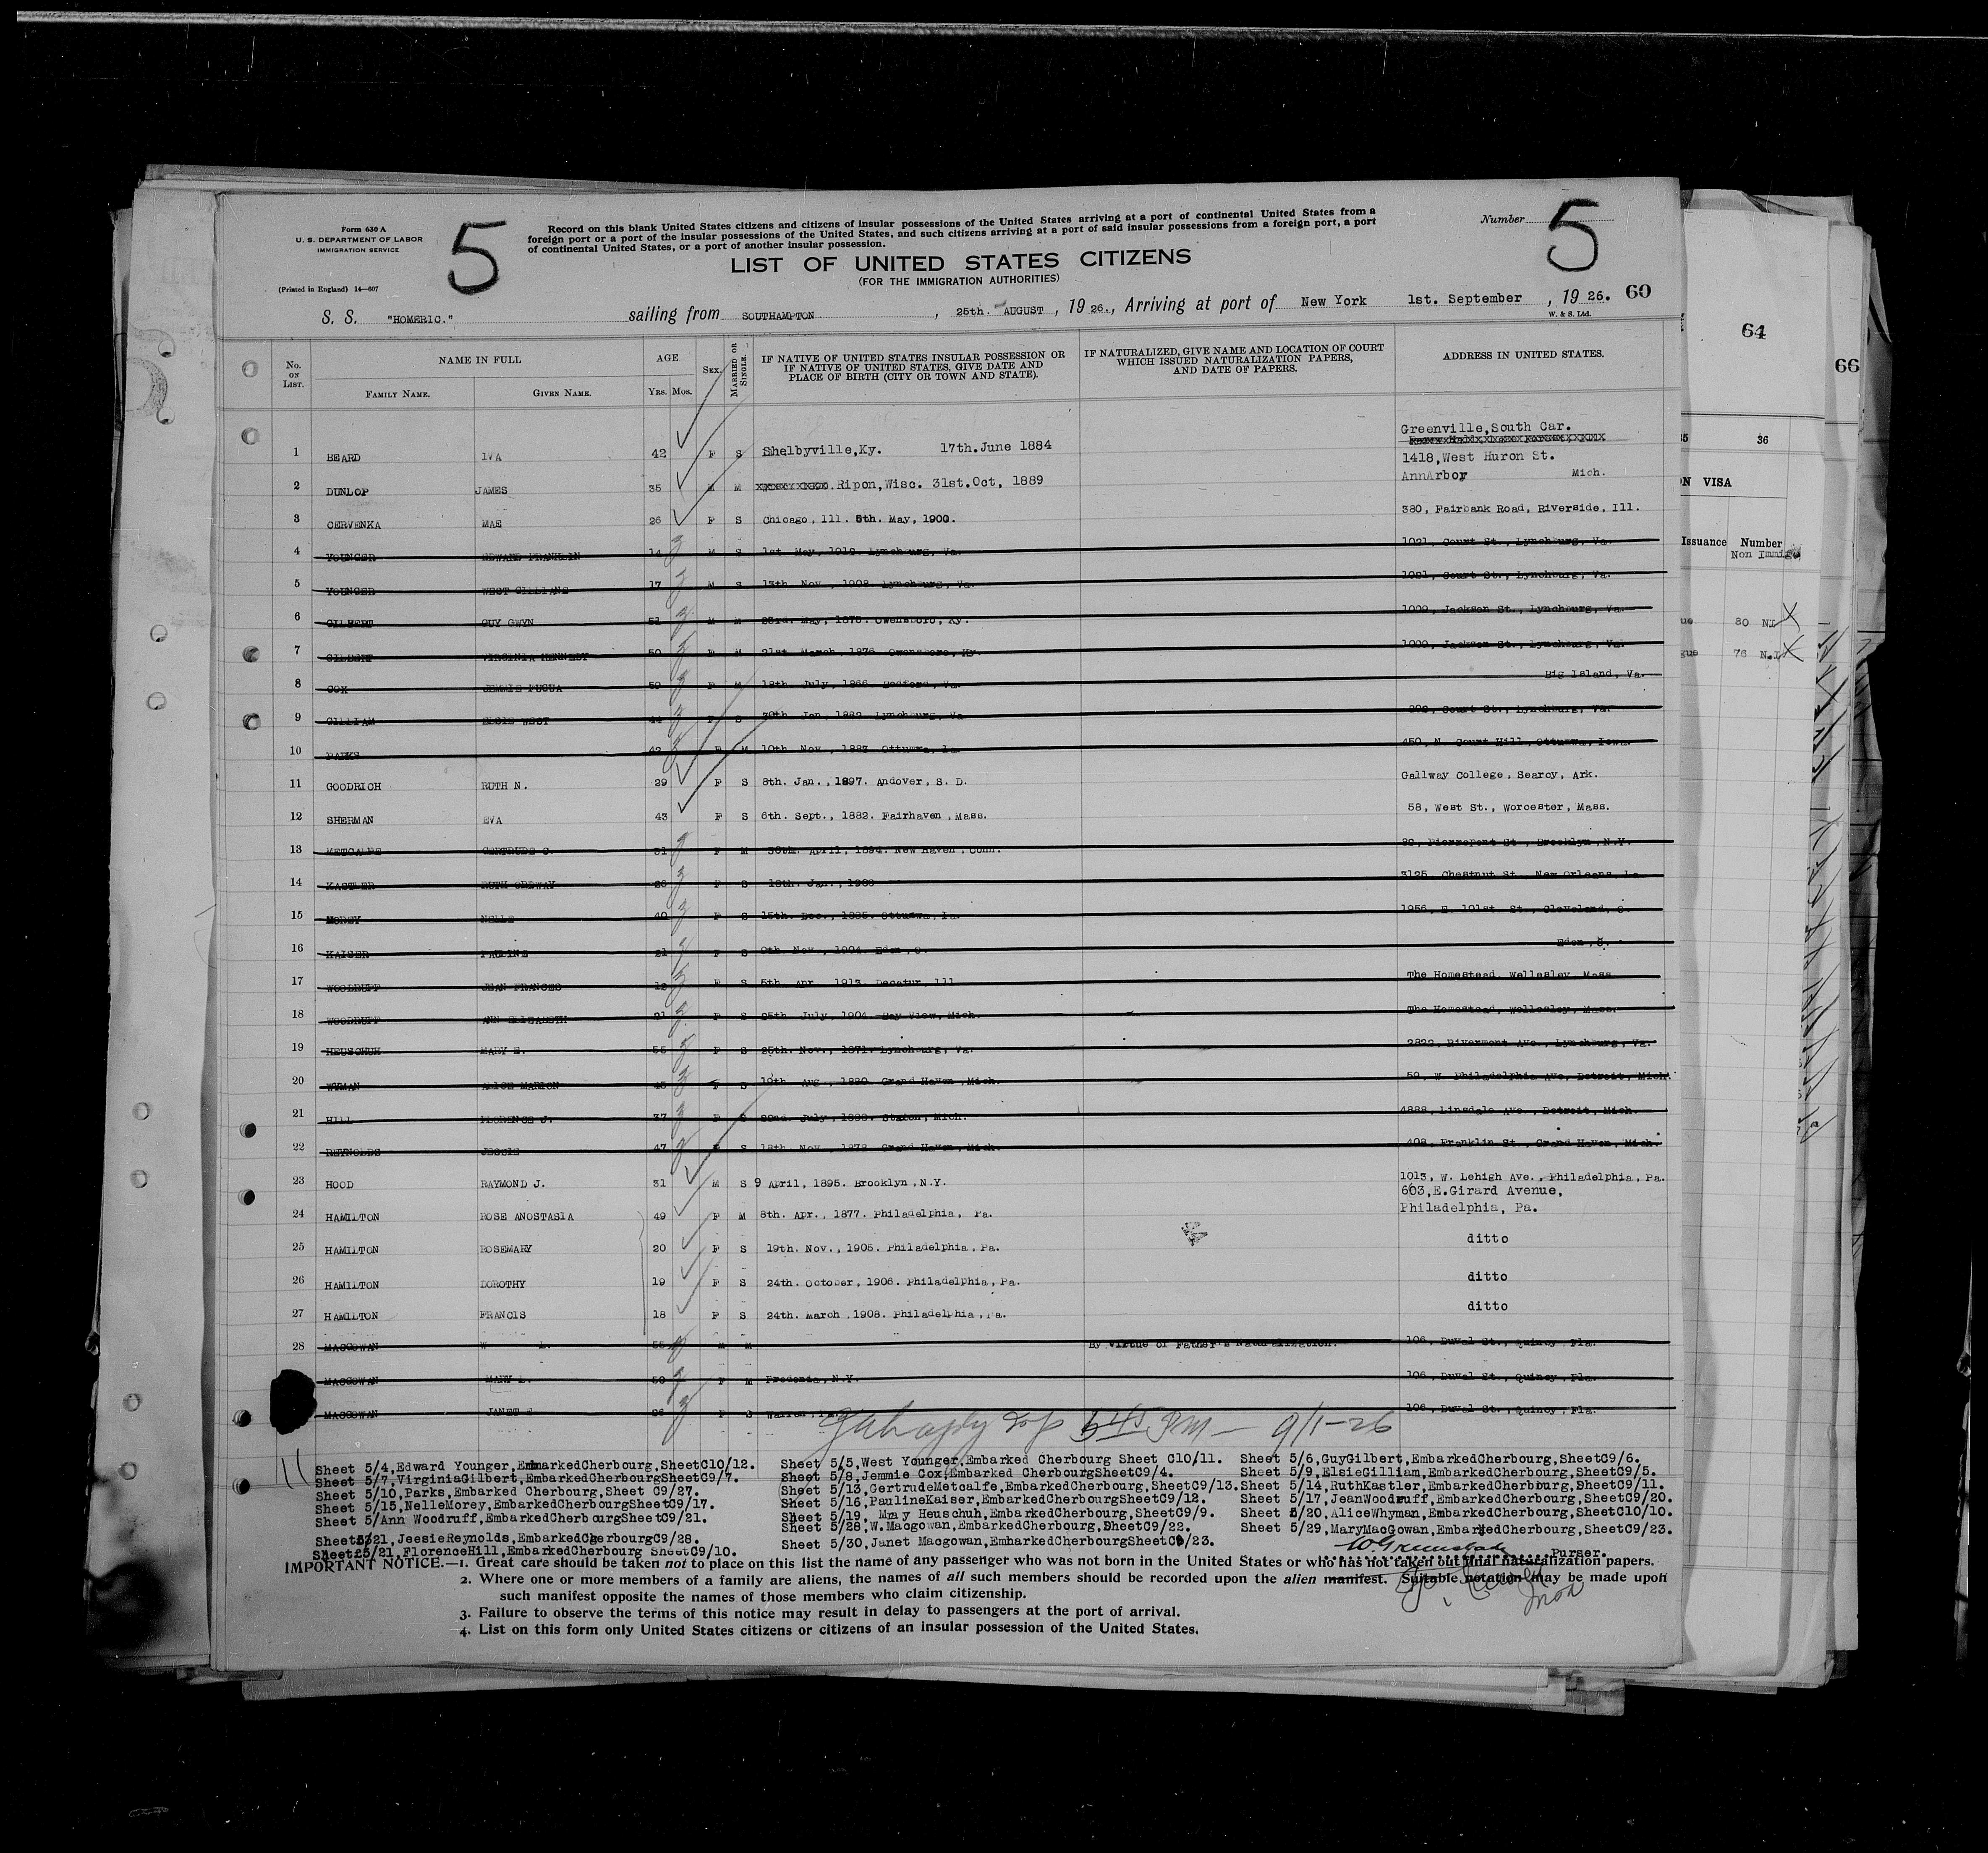 Form 630 A
U. S. DEPARTMENT OF LABOR
IMMIGRATION SERVICE
(Printed in England) 14—607
5
Record on this blank United States citizens and citizens of insular possessions of the United States arriving at a port of continental United States from a
foreign port or a port of the insular possessions of the United States, and such citizens arriving at a port of said insular possessions from a foreign port, a port
of continental United States, or a port of another insular possession.
Number 5
LIST OF UNITED STATES CITIZENS
(FOR THE IMMIGRATION AUTHORITIES)
S. S. "HOMERIC." sailing from SOUTHAMPTON, 25th. AUGUST, 1926., Arriving at port of New York 1st. September, 1926. 60
W. & S. Ltd.
No. ON LIST. NAME IN FULL AGE SEX. MARRIED OR SINGLE. IF NATIVE OF UNITED STATES INSULAR POSSESSION OR IF NATIVE OF UNITED STATES, GIVE DATE AND PLACE OF BIRTH (CITY OR TOWN AND STATE). IF NATURALIZED, GIVE NAME AND LOCATION OF COURT WHICH ISSUED NATURALIZATION PAPERS, AND DATE OF PAPERS. ADDRESS IN UNITED STATES.
FAMILY NAME. GIVEN NAME. YRS. MOS.
Greenville,South Car.
1 BEARD IVA 42 F S Shelbyville,Ky. 17th.June 1884
1418,West Huron St.
2 DUNLOP JAMES 35 M M Ripon,Wisc. 31st.Oct, 1889 AnnArboy Mich.
3 CERVENKA MAE 26 F S Chicago, Ill. 5th. May, 1900. 380, Fairbank Road, Riverside, Ill.
4 YOUNGER EDWARD FRANKLIN 14 M S 1st. May, 1912. Lynchburg, Va. 1021, Court St., Lynchburg, Va.
5 YOUNGER WEST GILLIAND 17 M S 13th. Nov., 1908. Lynchburg, Va. 1021, Court St., Lynchburg, Va.
6 GILBERT GUY GWYN 51 M M 23rd. May, 1875. Owensboro, Ky. 1009, Jackson St., Lynchburg, Va.
7 GILBERT VIRGINIA KENNEDY 50 F M 21st. March, 1876. Owensboro, Ky. 1009, Jackson St., Lynchburg, Va.
8 COX JEMMIE FUQUA F M 18th. July, 1866. Bedford, Va. Big Island, Va.
9 GILLIAM ELSIE WEST 44 F S 30th. Jan. 1882. Lynchburg, Va. Court St., Lynchburg, Va.
10 PARKS 42 F M 10th. Nov., 1883. Ottumwa, Ia. 450, N. Court Hill, Ottumwa, Iowa.
11 GOODRICH RUTH N. 29 F S 8th. Jan., 1897. Andover, S. D. Gallway College, Searcy, Ark.
12 SHERMAN EVA 43 F S 6th. Sept., 1882. Fairhaven, Mass. 58, West St., Worcester, Mass.
13 METCALFE GERTRUDE S. 31 F M 30th. April, 1894. New Haven, Conn. Pierrepont St., Brooklyn, N.Y.
14 KASTLER RUTH ORDWAY F S 18th. Jan., 3125, Chestnut St., New Orleans, La.
15 MOREY NELLE 40 F S 15th. Dec., 1885. Ottumwa, Ia. 1956, E. 101st. St., Cleveland, O.
16 KAISER PAULINE 21 F S 9th. Nov., 1904. Eden, O. Eden, O.
17 WOODRUFF JEAN FRANCES 12 F S 5th. Apr. 1913. Decatur, Ill. The Homestead, Wellesley, Mass.
18 WOODRUFF ANN ELIZABETH 21 F S 25th. July, 1904. Bay View, Mich. The Homestead, Wellesley, Mass.
19 HEUSCHUH MARY E. F S 25th. Nov., 1871. Lynchburg, Va. 2822, Rivermont Ave., Lynchburg, Va.
20 WYMAN ALICE MARION 45 F S 19th. Aug., 1880. Grand Haven, Mich. 59, W. Philadelphia Ave, Detroit, Mich.
21 HILL FLORENCE J. 37 F S 22nd. July, Mich. 4888, Linsdale Ave., Detroit, Mich.
22 REYNOLDS JESSIE 47 F S 18th. Nov., 1878. Grand Haven, Mich. 408, Franklin St., Grand Haven, Mich.
23 HOOD RAYMOND J. 31 M S 9 April, 1895. Brooklyn, N.Y. 1013, W. Lehigh Ave., Philadelphia, Pa.
603,E.Girard Avenue,
24 HAMILTON ROSE ANOSTASIA 49 F M 8th. Apr., 1877. Philadelphia, Pa. Philadelphia, Pa.
25 HAMILTON ROSEMARY 20 F S 19th. Nov., 1905. Philadelphia, Pa. ditto
26 HAMILTON DOROTHY 19 F S 24th. October, 1906. Philadelphia, Pa. ditto
27 HAMILTON FRANCIS 18 F S 24th. March, 1908. Philadelphia, Pa. ditto
28 MACGOWAN W L. 55 M M By virtue of Father's Naturalization. 106, Duval St., Quincy, Fla.
MACGOWAN MARY L. F M Fredonia, N.Y. 106, Duval St., Quincy, Fla.
MACGOWAN JANET E 26 F S Warren, Pa. 106, Duval St., Quincy, Fla.
5 45 PM — 9/1-26
11
Sheet 5/4,Edward Younger,EmbarkedCherbourg,SheetC10/12. Sheet 5/5,West Younger,Embarked Cherbourg Sheet C10/11. Sheet 5/6,GuyGilbert,EmbarkedCherbourg,SheetC9/6.
Sheet 5/7,VirginiaGilbert,EmbarkedCherbourgSheetC9/7. Sheet 5/8,Jemmie Cox,Embarked CherbourgSheetC9/4. Sheet 5/9,ElsieGilliam,EmbarkedCherbourg,SheetC9/5.
Sheet 5/10,Parks,Embarked Cherbourg,Sheet C9/27. Sheet 5/13,GertrudeMetcalfe,EmbarkedCherbourg,SheetC9/13. Sheet 5/14,RuthKastler,EmbarkedCherbourg,SheetC9/11.
Sheet 5/15,NelleMorey,EmbarkedCherbourgSheetC9/17. Sheet 5/16,PaulineKaiser,EmbarkedCherbourgSheetC9/12. Sheet 5/17,JeanWoodruff,EmbarkedCherbourg,SheetC9/20.
Sheet 5/Ann Woodruff,EmbarkedCherbourgSheetC9/21. Sheet 5/19, Mray Heuschuh,EmbarkedCherbourg,SheetC9/9. Sheet 5/20,AliceWhyman,EmbarkedCherbourg,SheetC10/10.
Sheet 5/28,W.Macgowan,EmbarkedCherbourg,SheetC9/22. Sheet 5/29,MaryMacGowan,EmbarkedCherbourg,SheetC9/23.
Sheet5/21,JeesieReynolds,EmbarkedCherbourgC9/28. Sheet 5/30,Janet Macgowan,EmbarkedCherbourgSheetC9/23.
Sheet 5/21,FlorenceHill,EmbarkedCherbourg SheetC9/10.
Purser.
IMPORTANT NOTICE.—1. Great care should be taken not to place on this list the name of any passenger who was not born in the United States or who has not taken out final naturalization papers.
2. Where one or more members of a family are aliens, the names of all such members should be recorded upon the alien manifest. Suitable notation may be made upon
such manifest opposite the names of those members who claim citizenship.
3. Failure to observe the terms of this notice may result in delay to passengers at the port of arrival.
4. List on this form only United States citizens or citizens of an insular possession of the United States.
64
66
35 36
ON VISA
Issuance Number
Non Immig
80 NI
76 N.I.